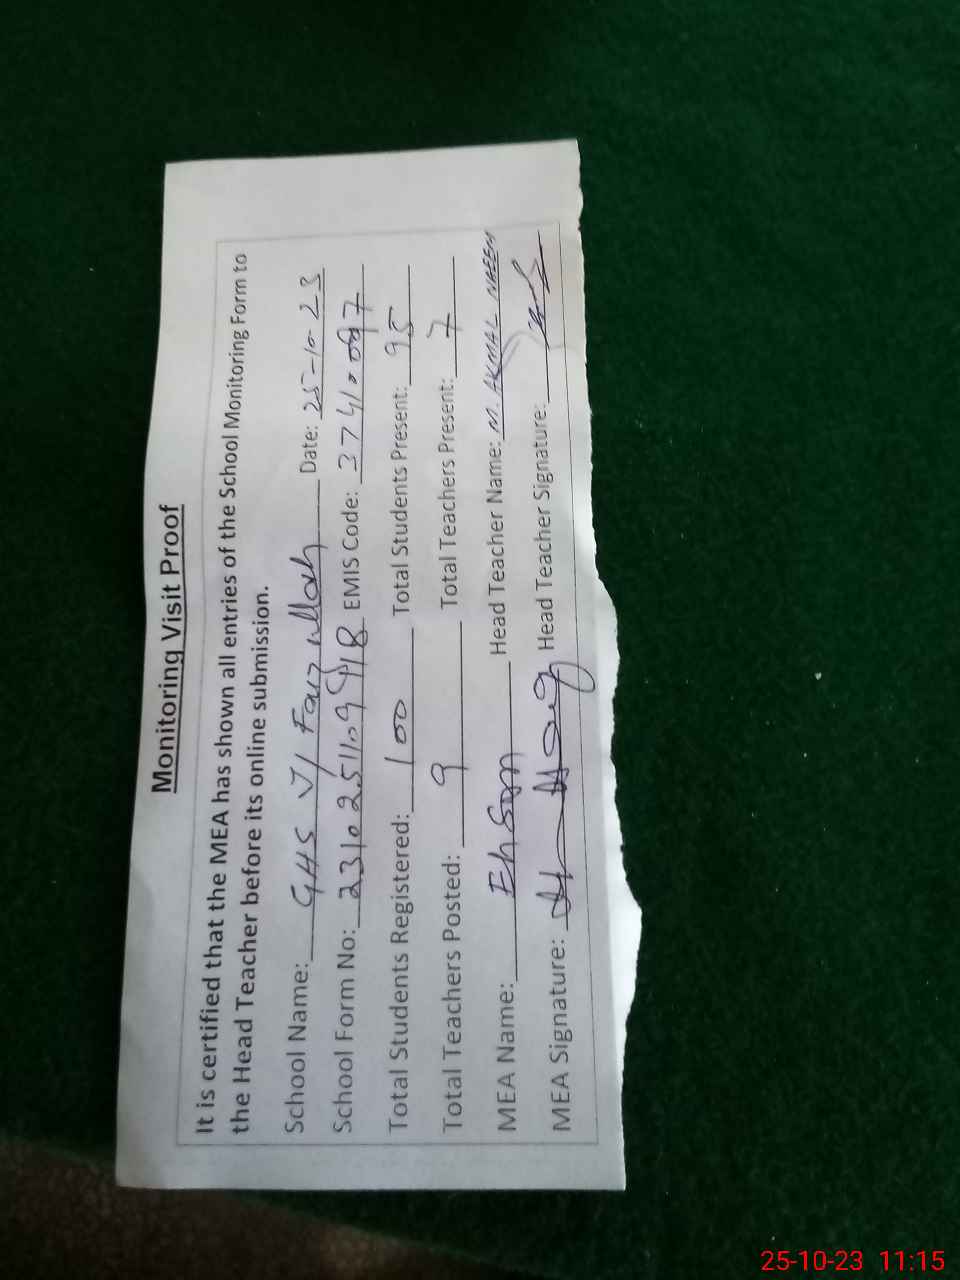 Monitoring Visit Proof
It is certified that the MEA has shown all entries of the School Monitoring Form to
the Head Teacher before its online submission.
School Name: GHS Date: 25-10-23
School Form No: EMIS Code:
Total Students Registered: 100 Total Students Present: 95
Total Teachers Posted: 9 Total Teachers Present: 7
MEA Name: Ehsan Head Teacher Name: M. AKMAL NAEEM
MEA Signature: Head Teacher Signature:
25-10-23 11:15